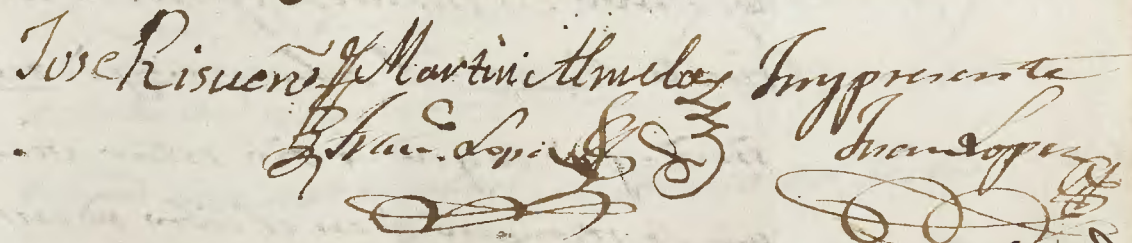 Jose Risueño Martin Almela Fuy presente
Franco. Lopez Juan Lopez